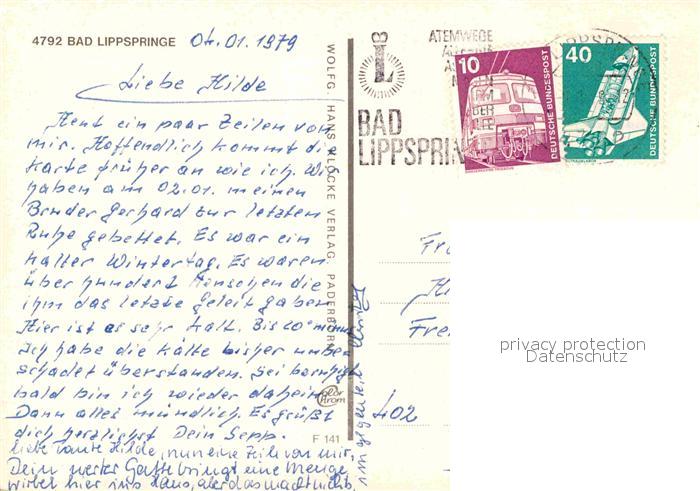 4792 BAD LIPPSPRINGE 04.01.1979
Liebe Hilde
Heut ein paar Zeilen von
mir. Hoffendlich kommt die
Karte früher an wie ich. Wir
haben am 02.01. meinen
Bruder Gerhard zur letzten
Ruhe gebettet. Es war ein
kalter Wintertag. Es waren
über hundert Menschen die
ihm das letzte Geleit gaben.
Hier ist es sehr kalt. Bis 20° minus
Ich habe die Kälte bisher unbe-
schadet überstanden. Sei beruhigt
bald bin ich wieder daheim
Dann alles mündlich. Es grüßt
dich herzlichst Dein Sepp.
liebe Tante Hilde, nun eine Zeile von mir.
Dein werter Gatte bringt eine Menge
wirbel hier ins Haus, aber das macht nichts,
im gegenteil
WOLFG. HANS KLOCKE VERLAG PADERBORN
Color
Chrom
F 141
ATEMWEGE
BAD
LIPPSPRIN
10
DEUTSCHE BUNDESPOST
40
DEUTSCHE BUNDESPOST
Fr
402
privacy protection
Datenschutz